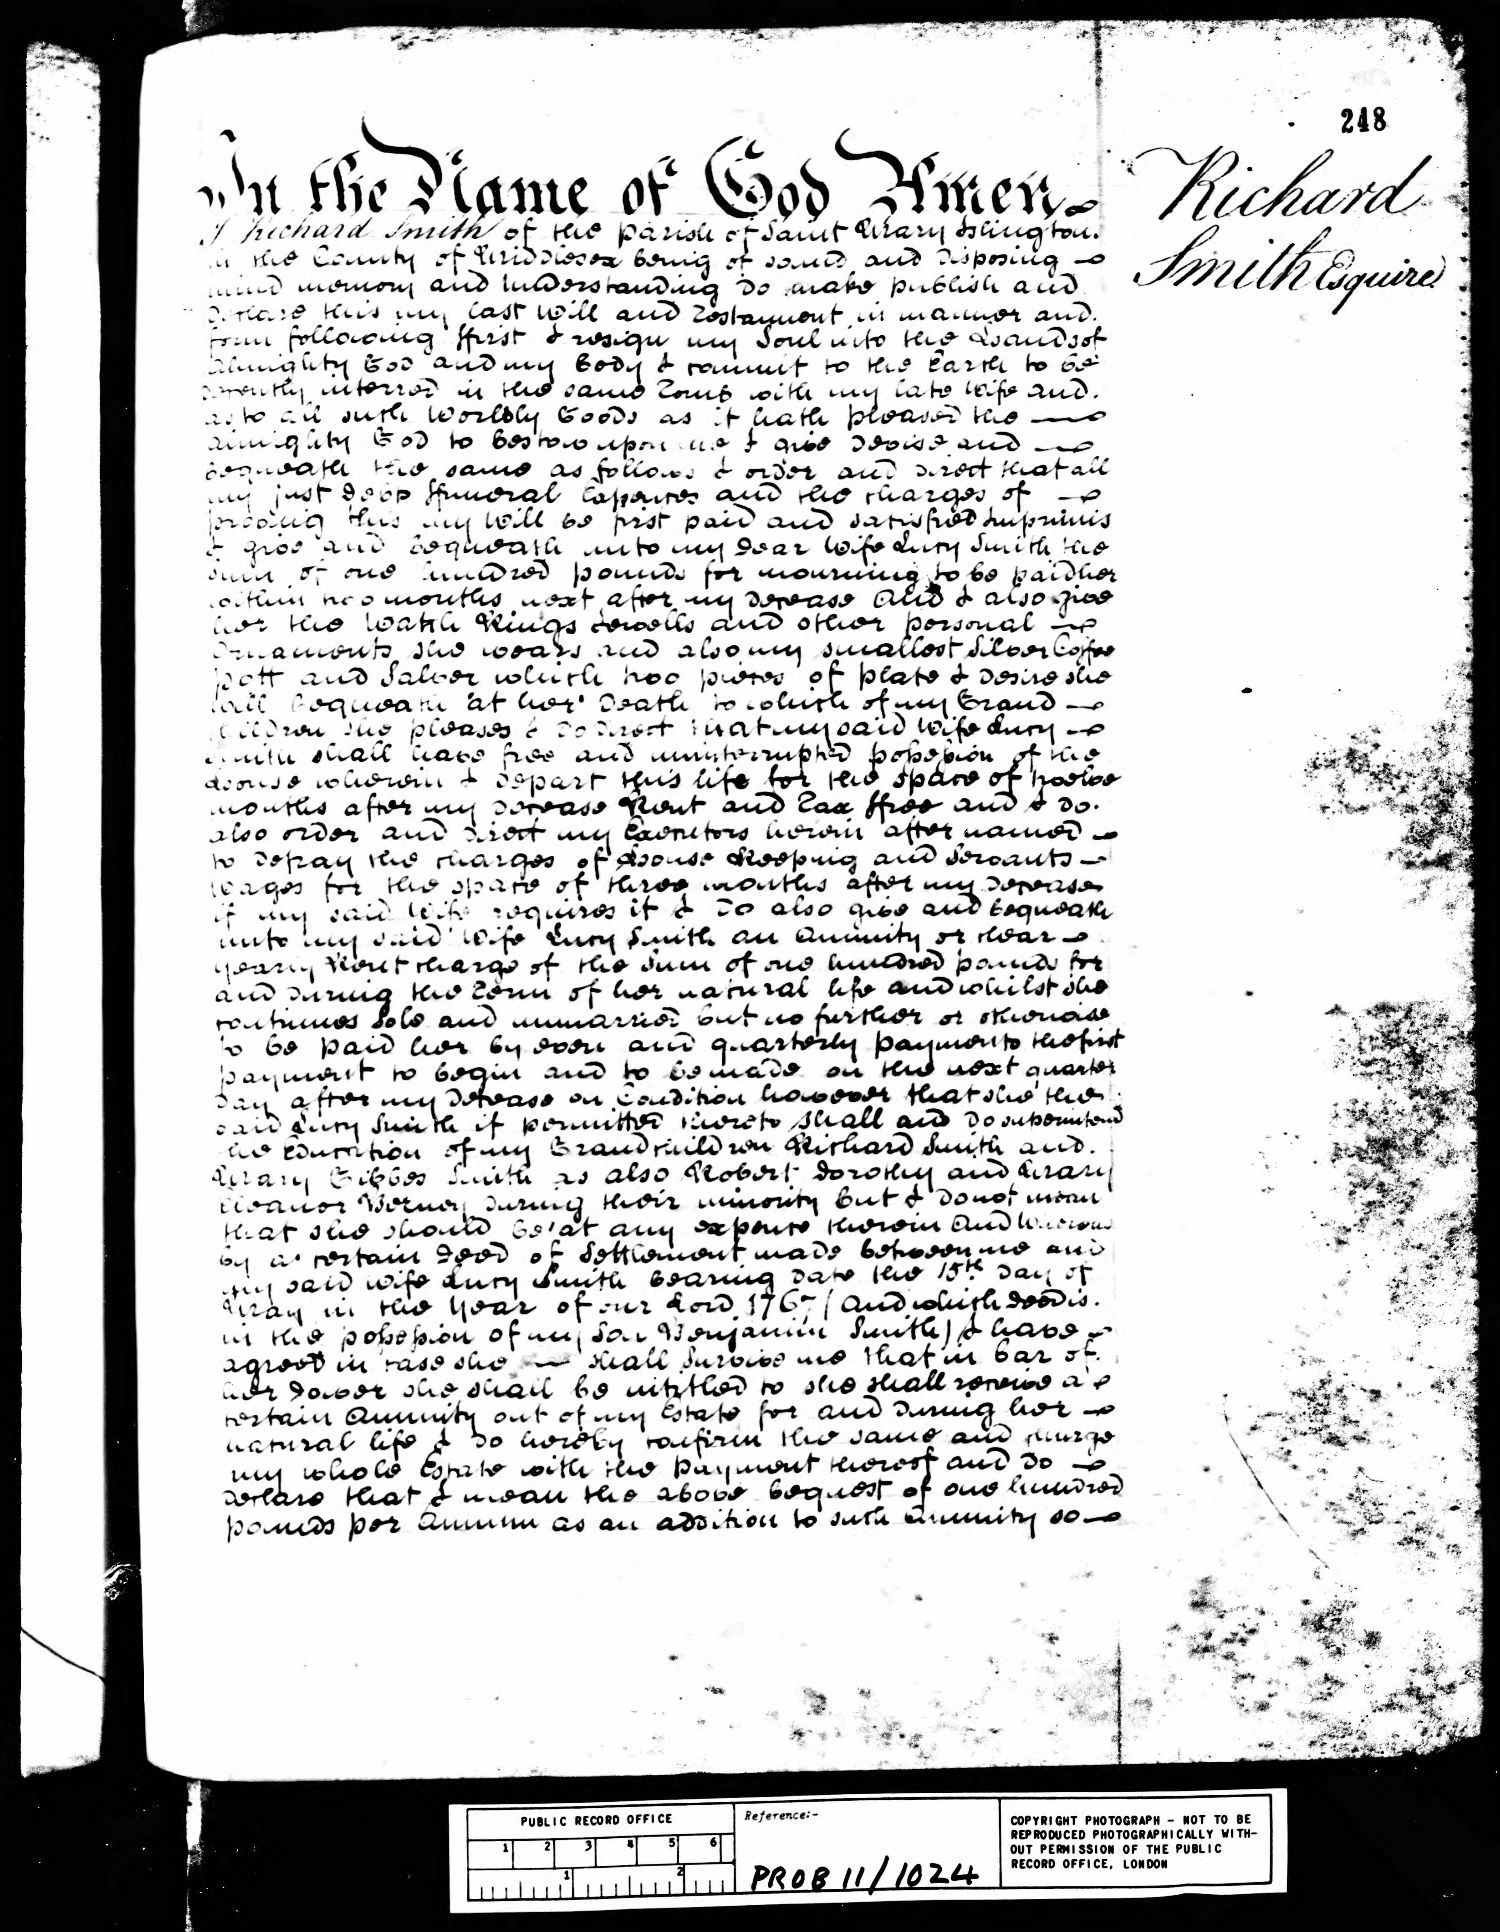 248
Richard
Smith Esquire
In the Name of God Amen
I Richard Smith of the parish of Saint Mary Islington
in the County of Middlesex being of sound and disposing
mind memory and Understanding do make publish and
declare this my last Will and Testament in manner and
form following ffirst I resign my Soul into the Hands of
Almighty God and my Body I commit to the Earth to be
decently interred in the same Tomb with my late Wife and
as to all such Worldly Goods as it hath pleased the
almighty God to bestow upon me I give devise and
bequeath the same as follows I order and direct that all
my just Debts ffuneral Expences and the charges of
proving this my Will be first paid and satisfied Imprimis
I give and bequeath unto my dear Wife Lucy Smith the
sum of one hundred pounds for mourning to be paid her
within two months next after my decease And I also give
her the Watch Rings Jewells and other personal
Ornaments she wears and also my smallest Silver Coffee
pott and Salver which two pieces of plate I desire she
will bequeath at her Death to which of my Grand
children she pleases I do direct that my said Wife Lucy
Smith shall have free and uninterrupted possession of the
House wherein I depart this life for the space of twelve
months after my decease Rent and Tax ffree and I do
also order and direct my Executors herein after named
to defray the charges of House Keeping and Servants
Wages for the space of three months after my decease
if my said Wife requires it I do also give and bequeath
unto my said Wife Lucy Smith an Annuity or clear
yearly Rent charge of the Sum of one hundred pounds for
and during the Term of her natural life and whilst she
continues Sole and unmarried but no further or otherwise
to be paid her by even and quarterly payments the first
payment to begin and to be made on the next quarter
day after my decease on Condition however that she the
said Lucy Smith if permitted thereto shall and do superintend
the Education of my Grandchildren Richard Smith and
Mary Gibbes Smith as also Robert Dorothy and Mary
Eleanor Berney during their minority but I do not mean
that she should be at any expence therein And Whereas
by a certain Deed of Settlement made between me and
my said Wife Lucy Smith bearing date the 15th day of
May in the Year of our Lord 1767 (and which deed is
in the possession of my Son Benjamin Smith) I have
agreed in case she shall survive me that in bar of
her dower she shall be intitled to she shall receive a
certain Annuity out of my Estate for and during her
natural life I do hereby confirm the same and charge
my whole Estate with the payment thereof and do
declare that I mean the above bequest of one hundred
pounds per Annum as an addition to such Annuity so
PUBLIC RECORD OFFICE
1 2 3 4 5 6
1 2
Reference:-
PROB 11/1024
COPYRIGHT PHOTOGRAPH - NOT TO BE
REPRODUCED PHOTOGRAPHICALLY WITH-
OUT PERMISSION OF THE PUBLIC
RECORD OFFICE, LONDON